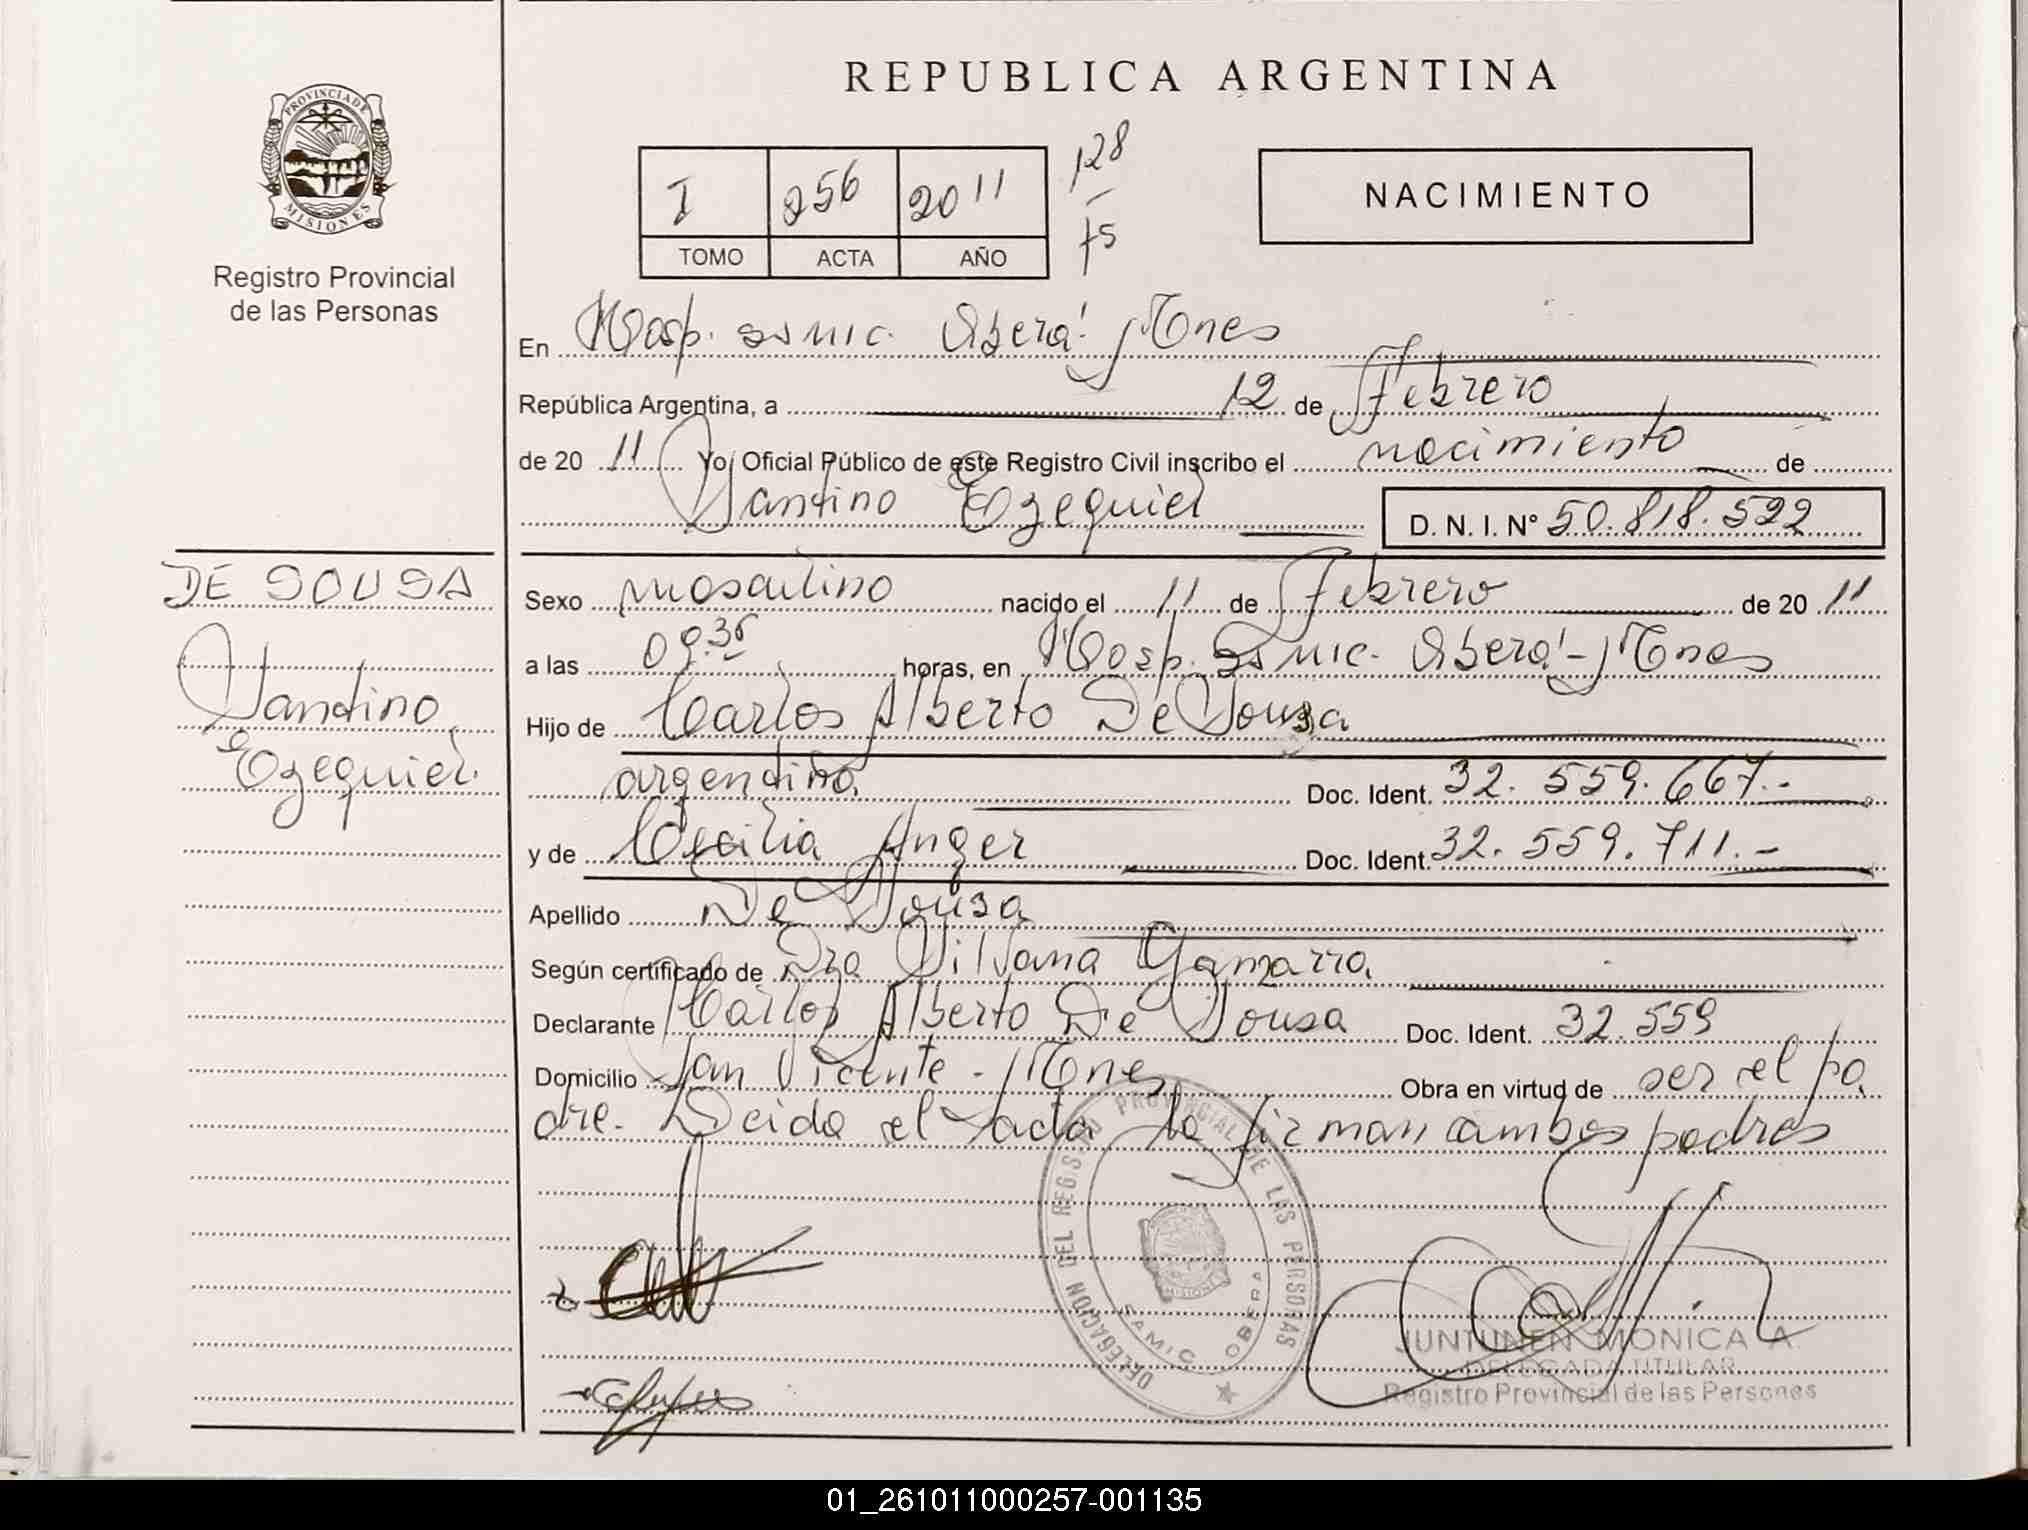 REPUBLICA ARGENTINA
PROVINCIA DE MISIONES
Registro Provincial
de las Personas
I 256 2011
TOMO ACTA AÑO
128
75
NACIMIENTO
En Hosp. SAMIC. Oberá Mnes
República Argentina, a 12 de Febrero
de 20 11 Yo, Oficial Público de este Registro Civil inscribo el nacimiento de
Santino Ezequiel D. N. I. N° 50.818.522
DE SOUSA
Santino
Ezequiel.
Sexo masculino nacido el 11 de Febrero de 20 11
a las 09.35 horas, en Hosp. SAMIC. Oberá - Mnes
Hijo de Carlos Alberto De Sousa
argentino. Doc. Ident. 32.559.667.-
y de Cecilia Anger Doc. Ident. 32.559.711.-
Apellido De Sousa
Según certificado de Dra Silvana Gamarra
Declarante Carlos Alberto De Sousa Doc. Ident. 32.559
Domicilio San Vicente - Mnes Obra en virtud de ser el pa
dre. Leida el acta la firman ambos padres
DELEGACION DEL REGISTRO PROVINCIAL DE LAS PERSONAS
MISIONES
SAMIC OBERA
JUNTUNEN MONICA A.
DELEGADA TITULAR
Registro Provincial de las Personas
01_261011000257-001135